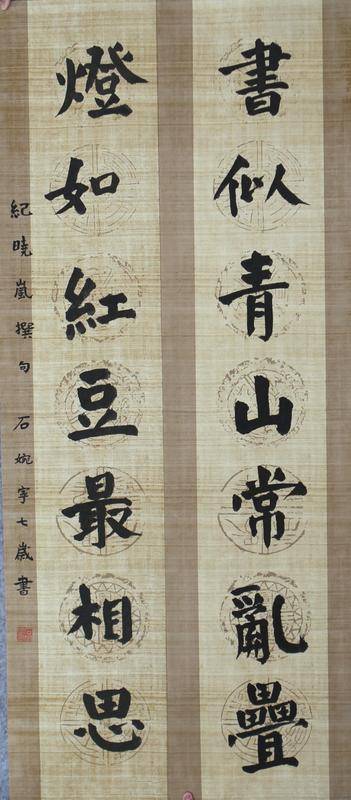 書似青山常亂疊
燈如紅豆最相思
紀曉嵐撰句 石婉寧七歲書